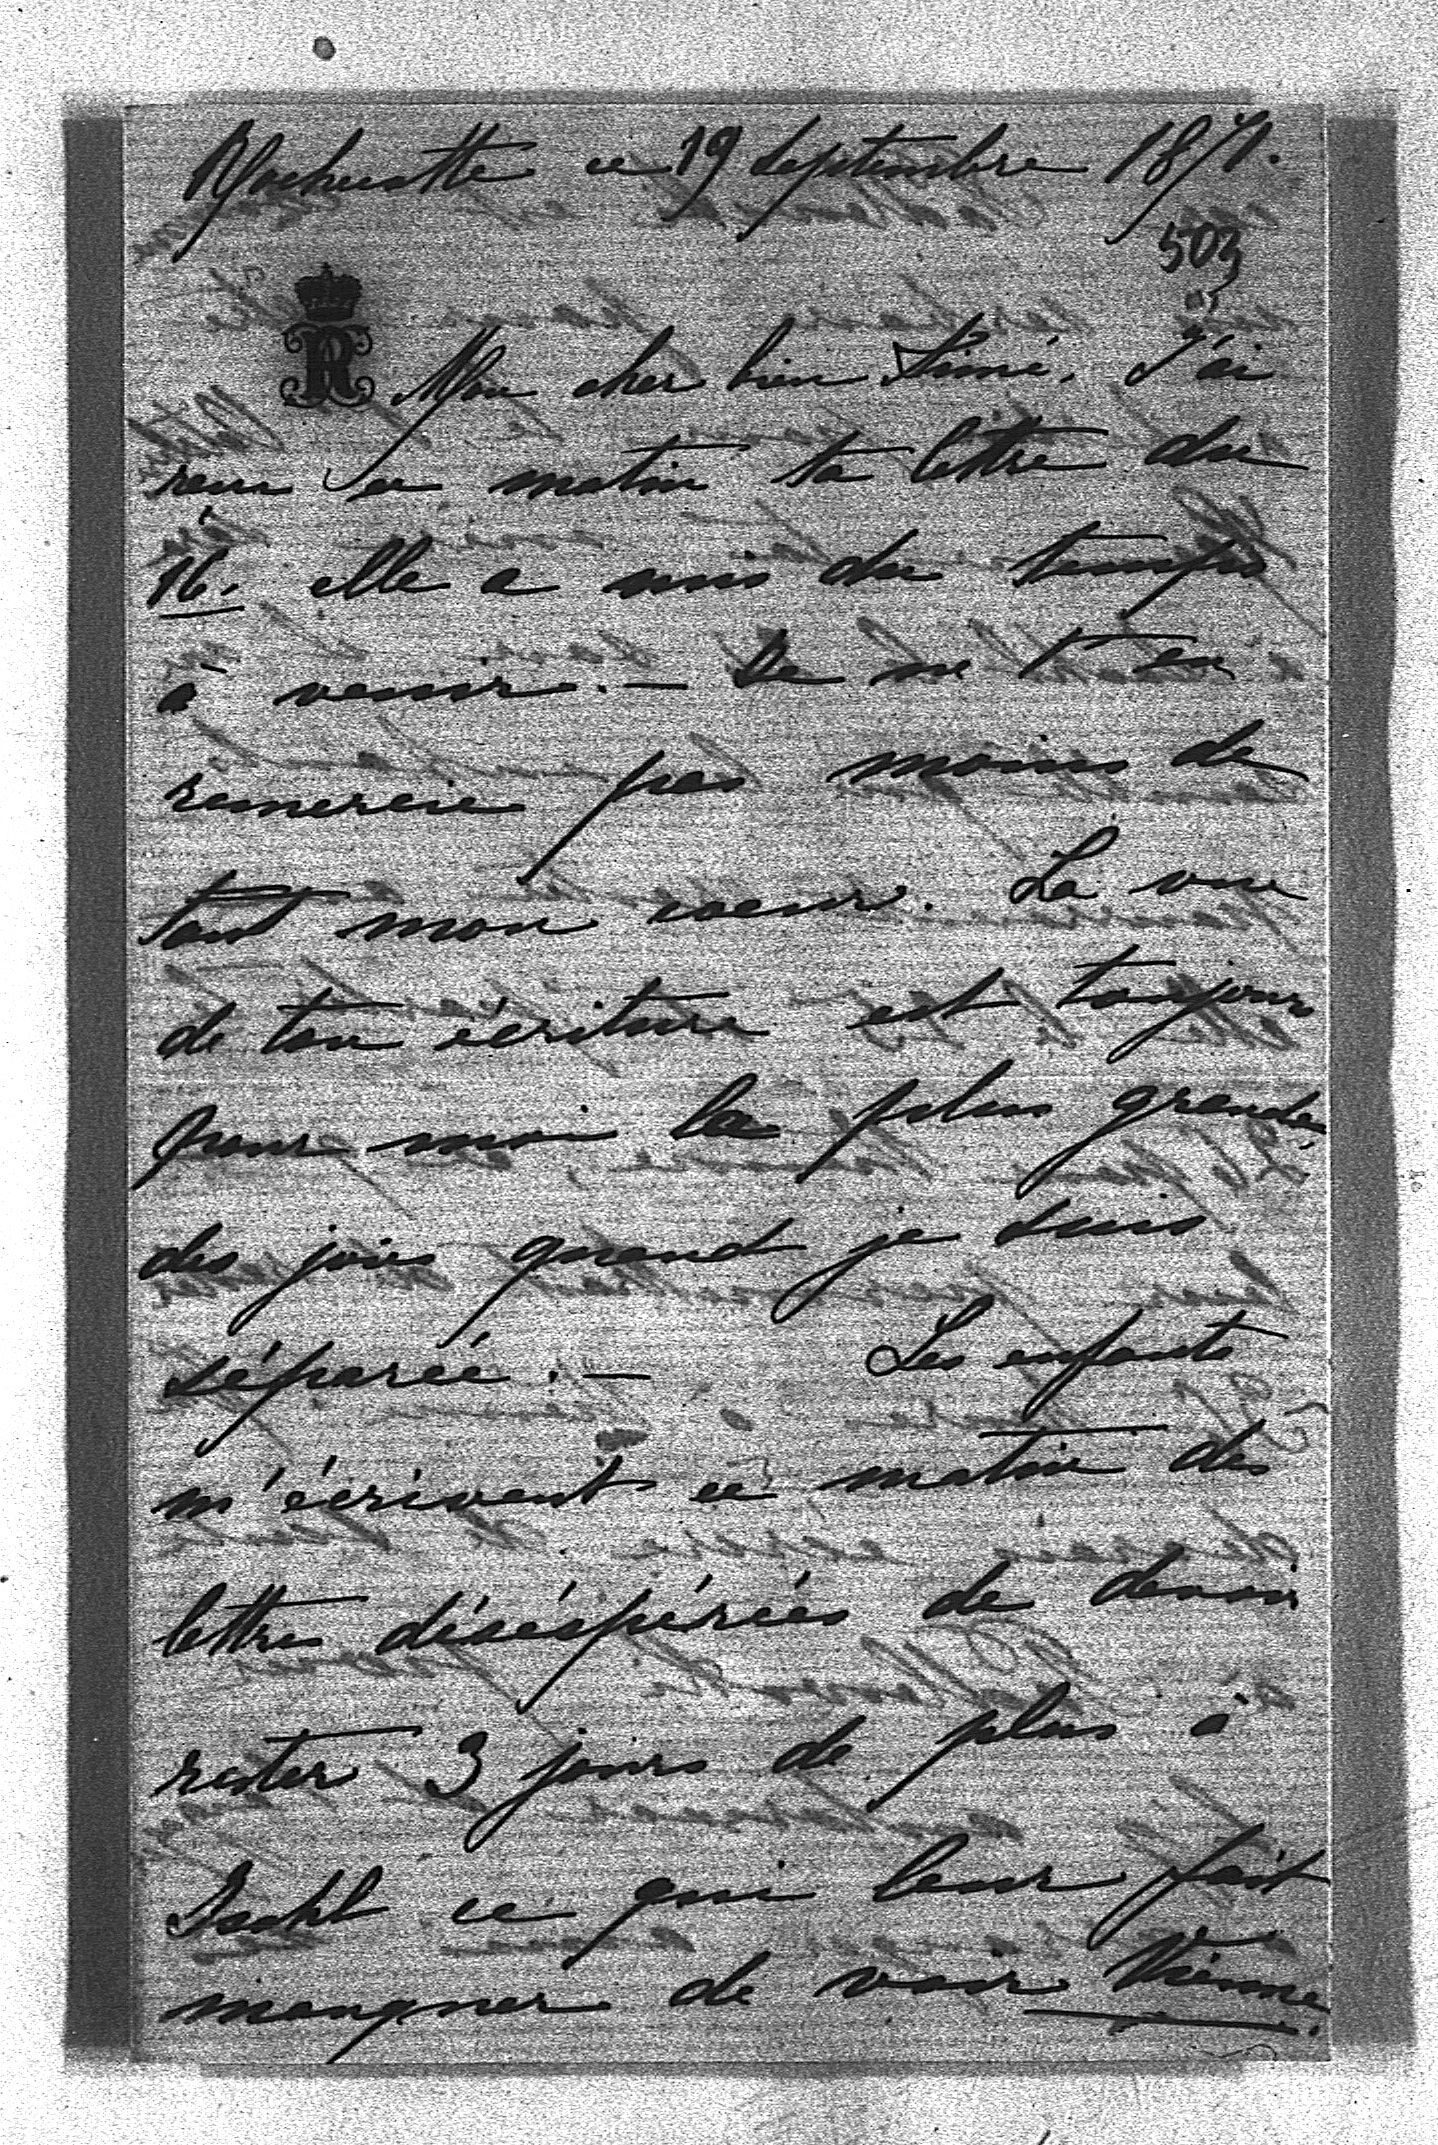 Rochecotte ce 19 Septembre 1871.
503
R Mon cher bien Aimé. J'ai
recu ce matin ta lettre du
16. elle a mis du temps
à venir. — Je ne t'en
remercie pas moins de
tout mon coeur. La vue
de ton écriture est toujours
pour moi la plus grande
des joies quand je suis
séparée. — Les enfants
m'écrivent ce matin des
lettres désespérées de devoir
rester 3 jours de plus à
Ischl ce qui leur fait
manquer de voir Vienne.